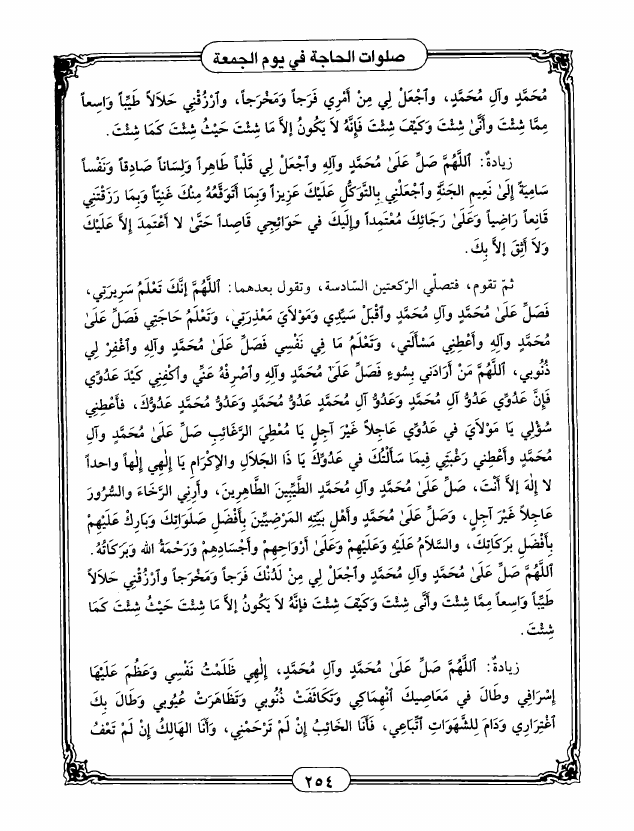 صلوات الحاجة في يوم الجمعة
مُحَمَّدٍ وآلِ مُحَمَّدٍ، وٱجْعَلْ لِي مِنْ أَمْرِي فَرَجاً وَمَخْرَجاً، وٱرْزُقْنِي حَلَالاً طَيِّباً وَاسِعاً
مِمَّا شِئْتَ وأَنَّىٰ شِئْتَ وَكَيْفَ شِئْتَ فَإِنَّهُ لَا يَكُونُ إلاَّ مَا شِئْتَ حَيْثُ شِئْتَ كَمَا شِئْتَ.
زيادةٌ: ٱللَّهُمَّ صَلِّ عَلَىٰ مُحَمَّدٍ وآلِهِ وٱجْعَلْ لِي قَلْباً طَاهِراً وَلِسَاناً صَادِقاً وَنَفْساً
سَامِيَةً إلَىٰ نَعِيمِ الجَنَّةِ وٱجْعَلْنِي بِالتَّوَكُّلِ عَلَيْكَ عَزِيزاً وَبِمَا أَتَوَقَّعُهُ مِنْكَ غَنِيّاً وَبِمَا رَزَقْتَنِي
قَانِعاً رَاضِياً وَعَلَىٰ رَجَائِكَ مُعْتَمِداً وإلَيْكَ في حَوَائِجِي قَاصِداً حَتَّىٰ لا أَعْتَمِدَ إلاَّ عَلَيْكَ
وَلاَ أَثِقَ إلاَّ بِكَ.
ثمّ تقوم، فتصلّي الرّكعتين السّادسة، وتقول بعدهما: ٱللَّهُمَّ إنَّكَ تَعْلَمُ سَرِيرَتِي،
فَصَلِّ عَلَىٰ مُحَمَّدٍ وآلِ مُحَمَّدٍ وٱقْبَلْ سَيِّدِي وَمَوْلاَيَ مَعْذِرَتِي، وَتَعْلَمُ حَاجَتِي فَصَلِّ عَلَىٰ
مُحَمَّدٍ وآلِهِ وأَعْطِنِي مَسْأَلَتِي، وَتَعْلَمُ مَا فِي نَفْسِي فَصَلِّ عَلَىٰ مُحَمَّدٍ وآلِهِ وٱغْفِرْ لِي
ذُنُوبِي، ٱللَّهُمَّ مَنْ أَرَادَنِي بِسُوءٍ فَصَلِّ عَلَىٰ مُحَمَّدٍ وآلِهِ وٱصْرِفْهُ عَنِّي وٱكْفِنِي كَيْدَ عَدُوِّي
فَإنَّ عَدُوِّي عَدُوُّ آلِ مُحَمَّدٍ وَعَدُوُّ آلِ مُحَمَّدٍ عَدُوُّ مُحَمَّدٍ وَعَدُوُّ مُحَمَّدٍ عَدُوُّكَ، فأَعْطِنِي
سُؤْلِي يَا مَوْلاَيَ في عَدُوِّي عَاجِلاً غَيْرَ آجِلٍ يَا مُعْطِيَ الرَّغَائِبِ صَلِّ عَلَىٰ مُحَمَّدٍ وآلِ
مُحَمَّدٍ وأَعْطِنِي رَغْبَتِي فِيمَا سَأَلْتُكَ في عَدُوِّكَ يَا ذَا الجَلاَلِ والإكْرَامِ يَا إلٰهِي إلٰهاً واحداً
لا إلٰهَ إلاَّ أَنْتَ، صَلِّ عَلَىٰ مُحَمَّدٍ وآلِ مُحَمَّدٍ الطَّيِّبِينَ الطَّاهِرِينَ، وأَرِنِي الرَّخَاءَ والسُّرُورَ
عَاجِلاً غَيْرَ آجِلٍ، وَصَلِّ عَلَىٰ مُحَمَّدٍ وأَهْلِ بَيْتِهِ المَرْضِيِّينَ بِأَفْضَلِ صَلَوَاتِكَ وَبَارِكْ عَلَيْهِمْ
بِأَفْضَلِ بَرَكَاتِكَ، والسَّلاَمُ عَلَيْهِ وَعَلَيْهِمْ وَعَلَىٰ أَرْوَاحِهِمْ وأَجْسَادِهِمْ وَرَحْمَةُ الله وَبَرَكَاتُهُ.
ٱللَّهُمَّ صَلِّ عَلَىٰ مُحَمَّدٍ وآلِ مُحَمَّدٍ وٱجْعَلْ لِي مِنْ لَدُنْكَ فَرَجاً وَمَخْرَجاً وٱرْزُقْنِي حَلاَلاً
طَيِّباً وَاسِعاً مِمَّا شِئْتَ وأَنَّىٰ شِئْتَ وَكَيْفَ شِئْتَ فإنَّهُ لاَ يَكُونُ إلاَّ مَا شِئْتَ حَيْثُ شِئْتَ كَمَا
شِئْتَ.
زيادةٌ: ٱللَّهُمَّ صَلِّ عَلَىٰ مُحَمَّدٍ وآلِ مُحَمَّدٍ، إلٰهِي ظَلَمْتُ نَفْسِي وَعَظُمَ عَلَيْهَا
إسْرَافِي وطَالَ في مَعَاصِيكَ ٱنْهِمَاكِي وَتَكَاثَفَتْ ذُنُوبِي وَتَظَاهَرَتْ عُيُوبِي وَطَالَ بِكَ
ٱغْتِرَارِي وَدَامَ لِلشَّهَوَاتِ ٱتِّبَاعِي، فَأَنَا الخَائِبُ إنْ لَمْ تَرْحَمْنِي، وَأَنَا الهَالِكُ إنْ لَمْ تَعْفُ
٢٥٤